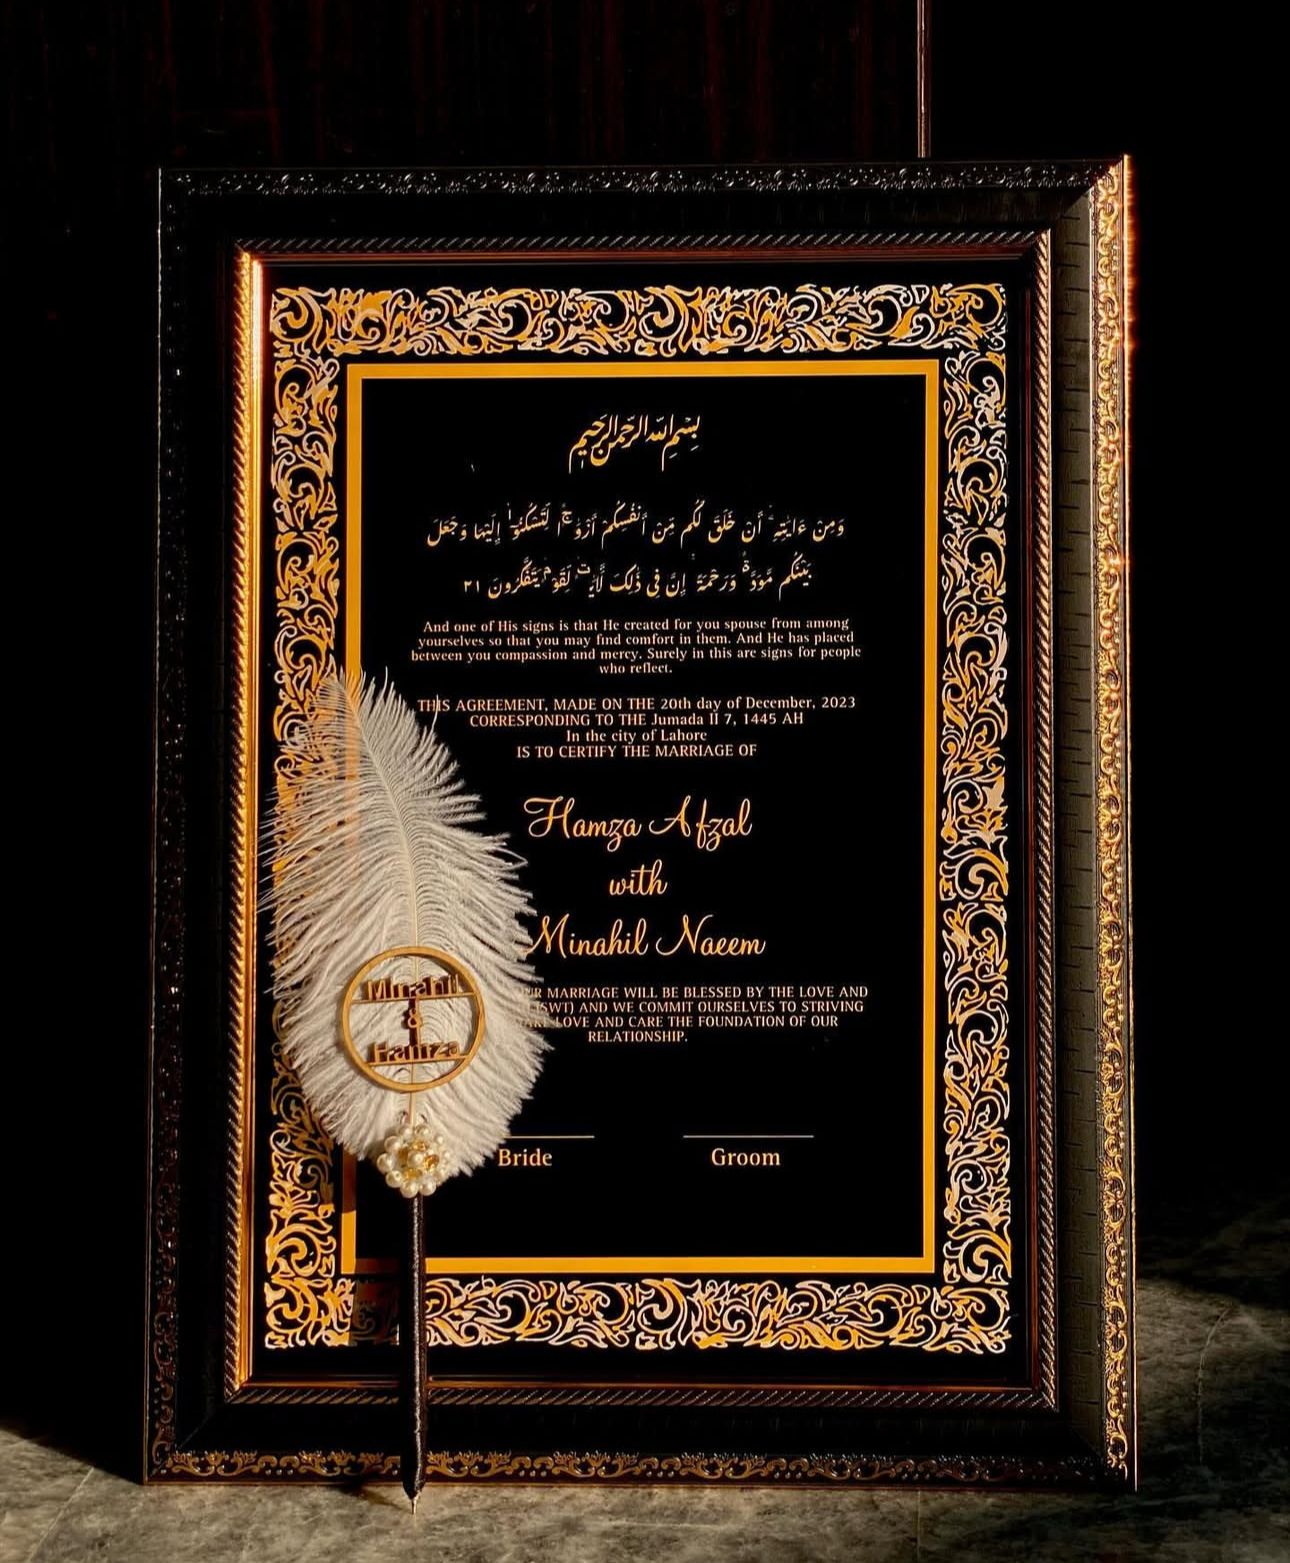 بِسْمِ اللهِ الرَّحْمٰنِ الرَّحِيْمِ
وَمِنْ ءَايَٰتِهِۦٓ أَنْ خَلَقَ لَكُم مِّنْ أَنفُسِكُمْ أَزْوَٰجًا لِّتَسْكُنُوٓا۟ إِلَيْهَا وَجَعَلَ
بَيْنَكُم مَّوَدَّةً وَرَحْمَةً ۚ إِنَّ فِى ذَٰلِكَ لَءَايَٰتٍ لِّقَوْمٍ يَتَفَكَّرُونَ ٢١
And one of His signs is that He created for you spouse from among
yourselves so that you may find comfort in them. And He has placed
between you compassion and mercy. Surely in this are signs for people
who reflect.
THIS AGREEMENT, MADE ON THE 20th day of December, 2023
CORRESPONDING TO THE Jumada II 7, 1445 AH
In the city of Lahore
IS TO CERTIFY THE MARRIAGE OF
Hamza Afzal
with
Minahil Naeem
MARRIAGE WILL BE BLESSED BY THE LOVE AND
(SWT) AND WE COMMIT OURSELVES TO STRIVING
LOVE AND CARE THE FOUNDATION OF OUR
RELATIONSHIP.
Minahil
&
Hamza
Bride Groom